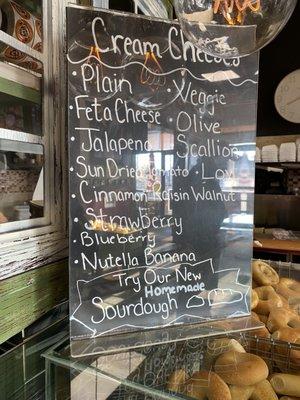 Cream Cheeses
Plain
Veggie
Feta Cheese
Olive
Jalapeno
Scallion
Sun Dried Tomato
Lox
Cinnamon Raisin Walnut
Strawberry
Blueberry
Nutella Banana
Try Our New
Homemade
Sourdough